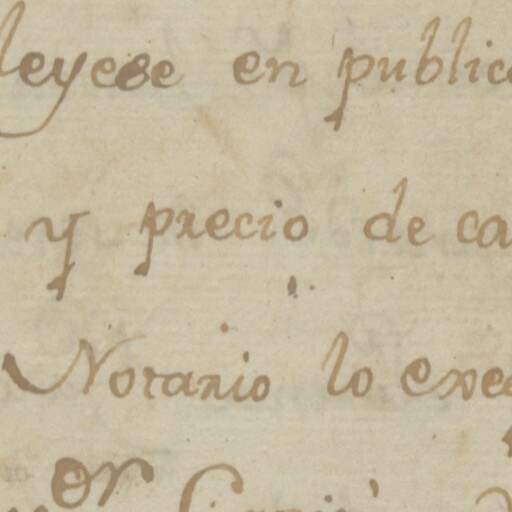 leyese en public
y precio de ca
Notario lo exe